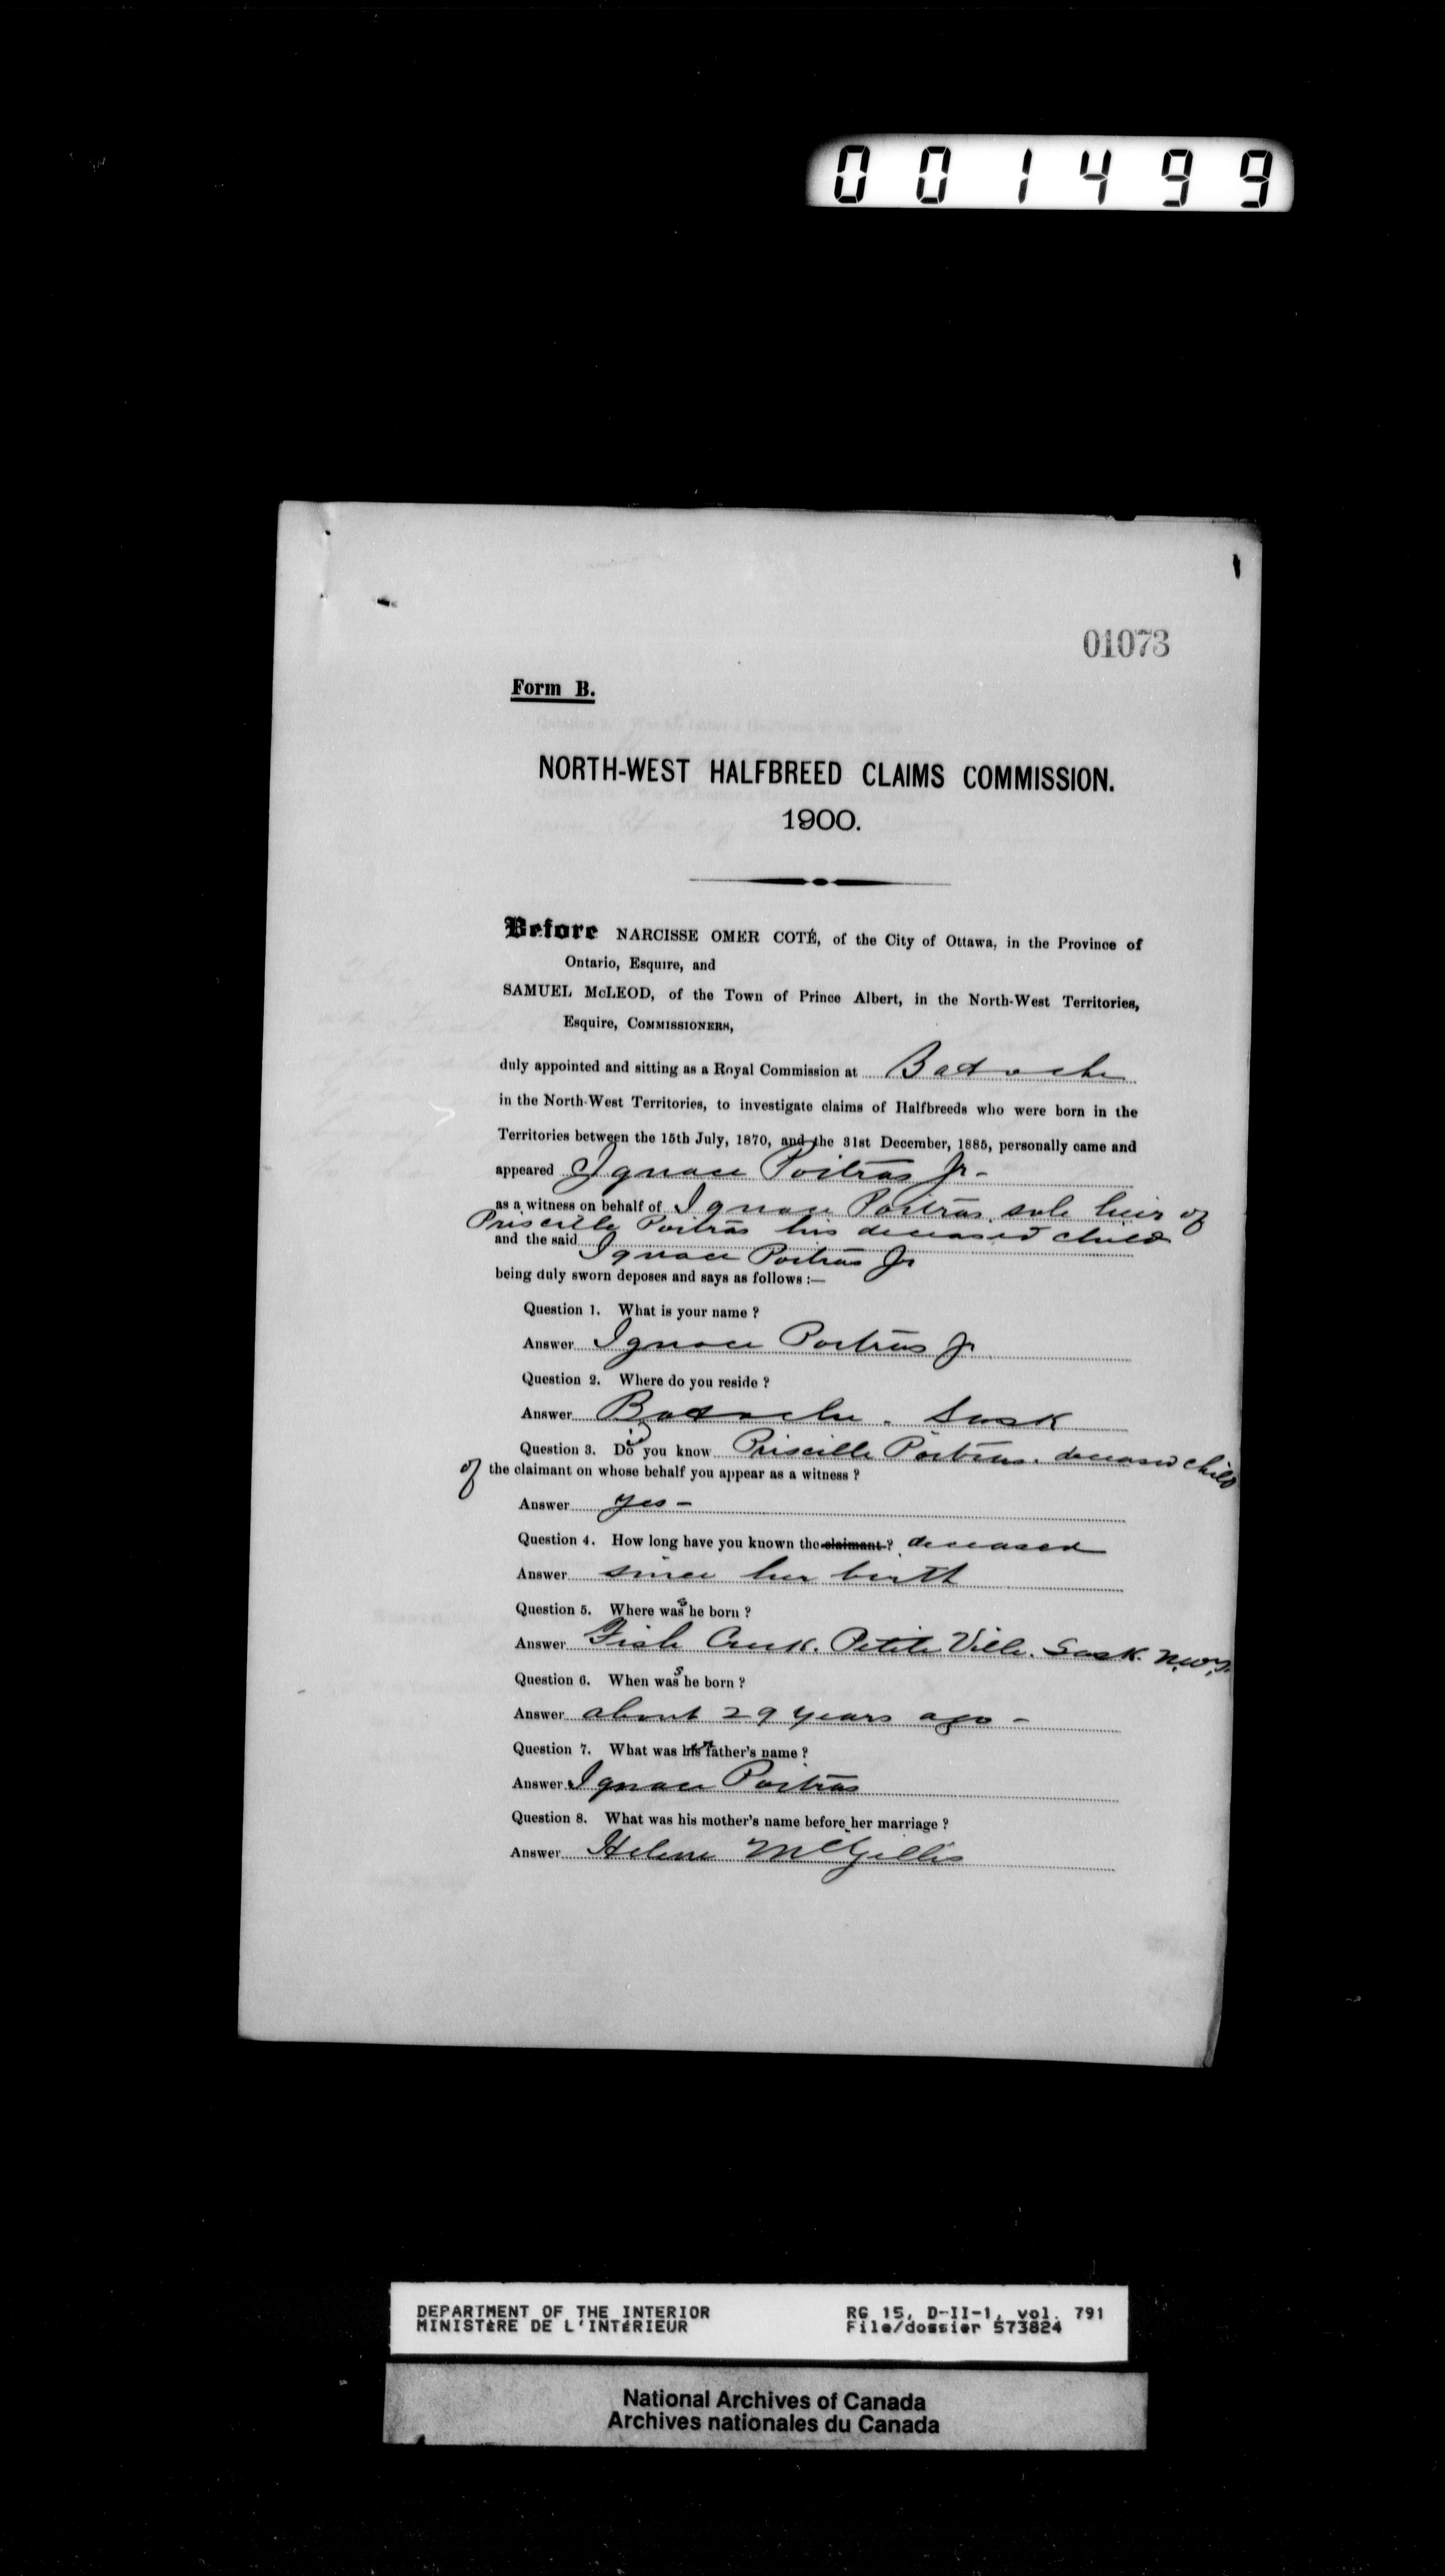 001499
01073
Form B.
NORTH-WEST HALFBREED CLAIMS COMMISSION.
1900.
Before NARCISSE OMER COTÉ, of the City of Ottawa, in the Province of
Ontario, Esquire, and
SAMUEL McLEOD, of the Town of Prince Albert, in the North-West Territories,
Esquire, COMMISSIONERS,
duly appointed and sitting as a Royal Commission at Batoche
in the North-West Territories, to investigate claims of Halfbreeds who were born in the
Territories between the 15th July, 1870, and the 31st December, 1885, personally came and
appeared Ignace Poitras Jr -
as a witness on behalf of Ignace Poitras, sole heir of
Priscille Poitras his deceased child
and the said Ignace Poitras Jr
being duly sworn deposes and says as follows :—
Question 1. What is your name ?
Answer Ignace Poitras Jr
Question 2. Where do you reside ?
Answer Batoche. Sask
Question 3. Did you know Priscille Poitras. deceased child
of the claimant on whose behalf you appear as a witness ?
Answer yes -
Question 4. How long have you known the claimant ? deceased
Answer since her birth
Question 5. Where was she born ?
Answer Fish Creek. Petite Ville. Sask. N.W.T.
Question 6. When was she born ?
Answer about 29 years ago -
Question 7. What was his father's name ?
Answer Ignace Poitras
Question 8. What was his mother's name before her marriage ?
Answer Helene McGillis
DEPARTMENT OF THE INTERIOR
MINISTÈRE DE L'INTÉRIEUR
RG 15, D-II-1, vol. 791
File/dossier 573824
National Archives of Canada
Archives nationales du Canada